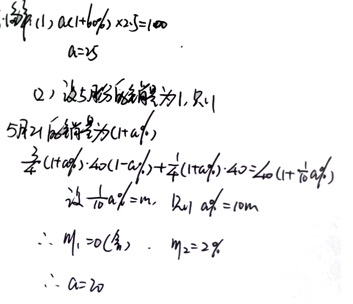 解:(1) a(1+60%)×2.5=100
a=25
(2) 设5月份的销量为1,则
5月21的销量为(1+a%)
3/4(1+a%)·40(1-a%)+1/4(1+a%)·40=40(1+1/10a%)
设1/10a%=m, 则a%=10m
∴ m₁=0(舍). m₂=2%
∴ a=20